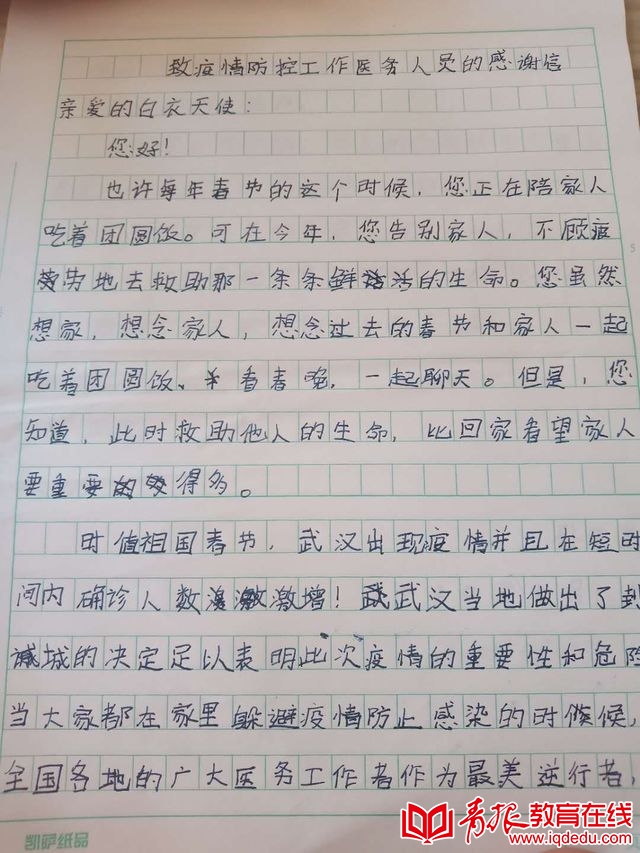 致疫情防控工作医务人员的感谢信
亲爱的白衣天使：
您好！
也许每年春节的这个时候，您正在陪家人
吃着团圆饭。可在今年，您告别家人，不顾疲
劳地去救助那一条条鲜活的生命。您虽然
想家，想念家人，想念过去的春节和家人一起
吃着团圆饭、看春晚，一起聊天。但是，您
知道，此时救助他人的生命，比回家看望家人
要重要得多。
时值祖国春节，武汉出现疫情并且在短时
间内确诊人数激增！武汉当地做出了封
城的决定足以表明此次疫情的重要性和危险
当大家都在家里躲避疫情防止感染的时候，
全国各地的广大医务工作者作为最美逆行者，
凯萨纸品
青报教育在线
www.iqdedu.com